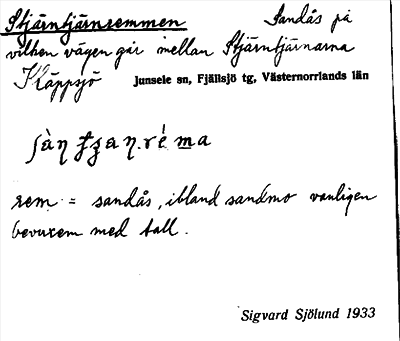 Stjärntjärnremmen Sandås på
vilken vägen går mellan Stjärntjärnarna
Kläppsjö Junsele sn, Fjällsjö tg, Västernorrlands län
rem = sandås, ibland sandmo vanligen
bevuxem med tall.
Sigvard Sjölund 1933